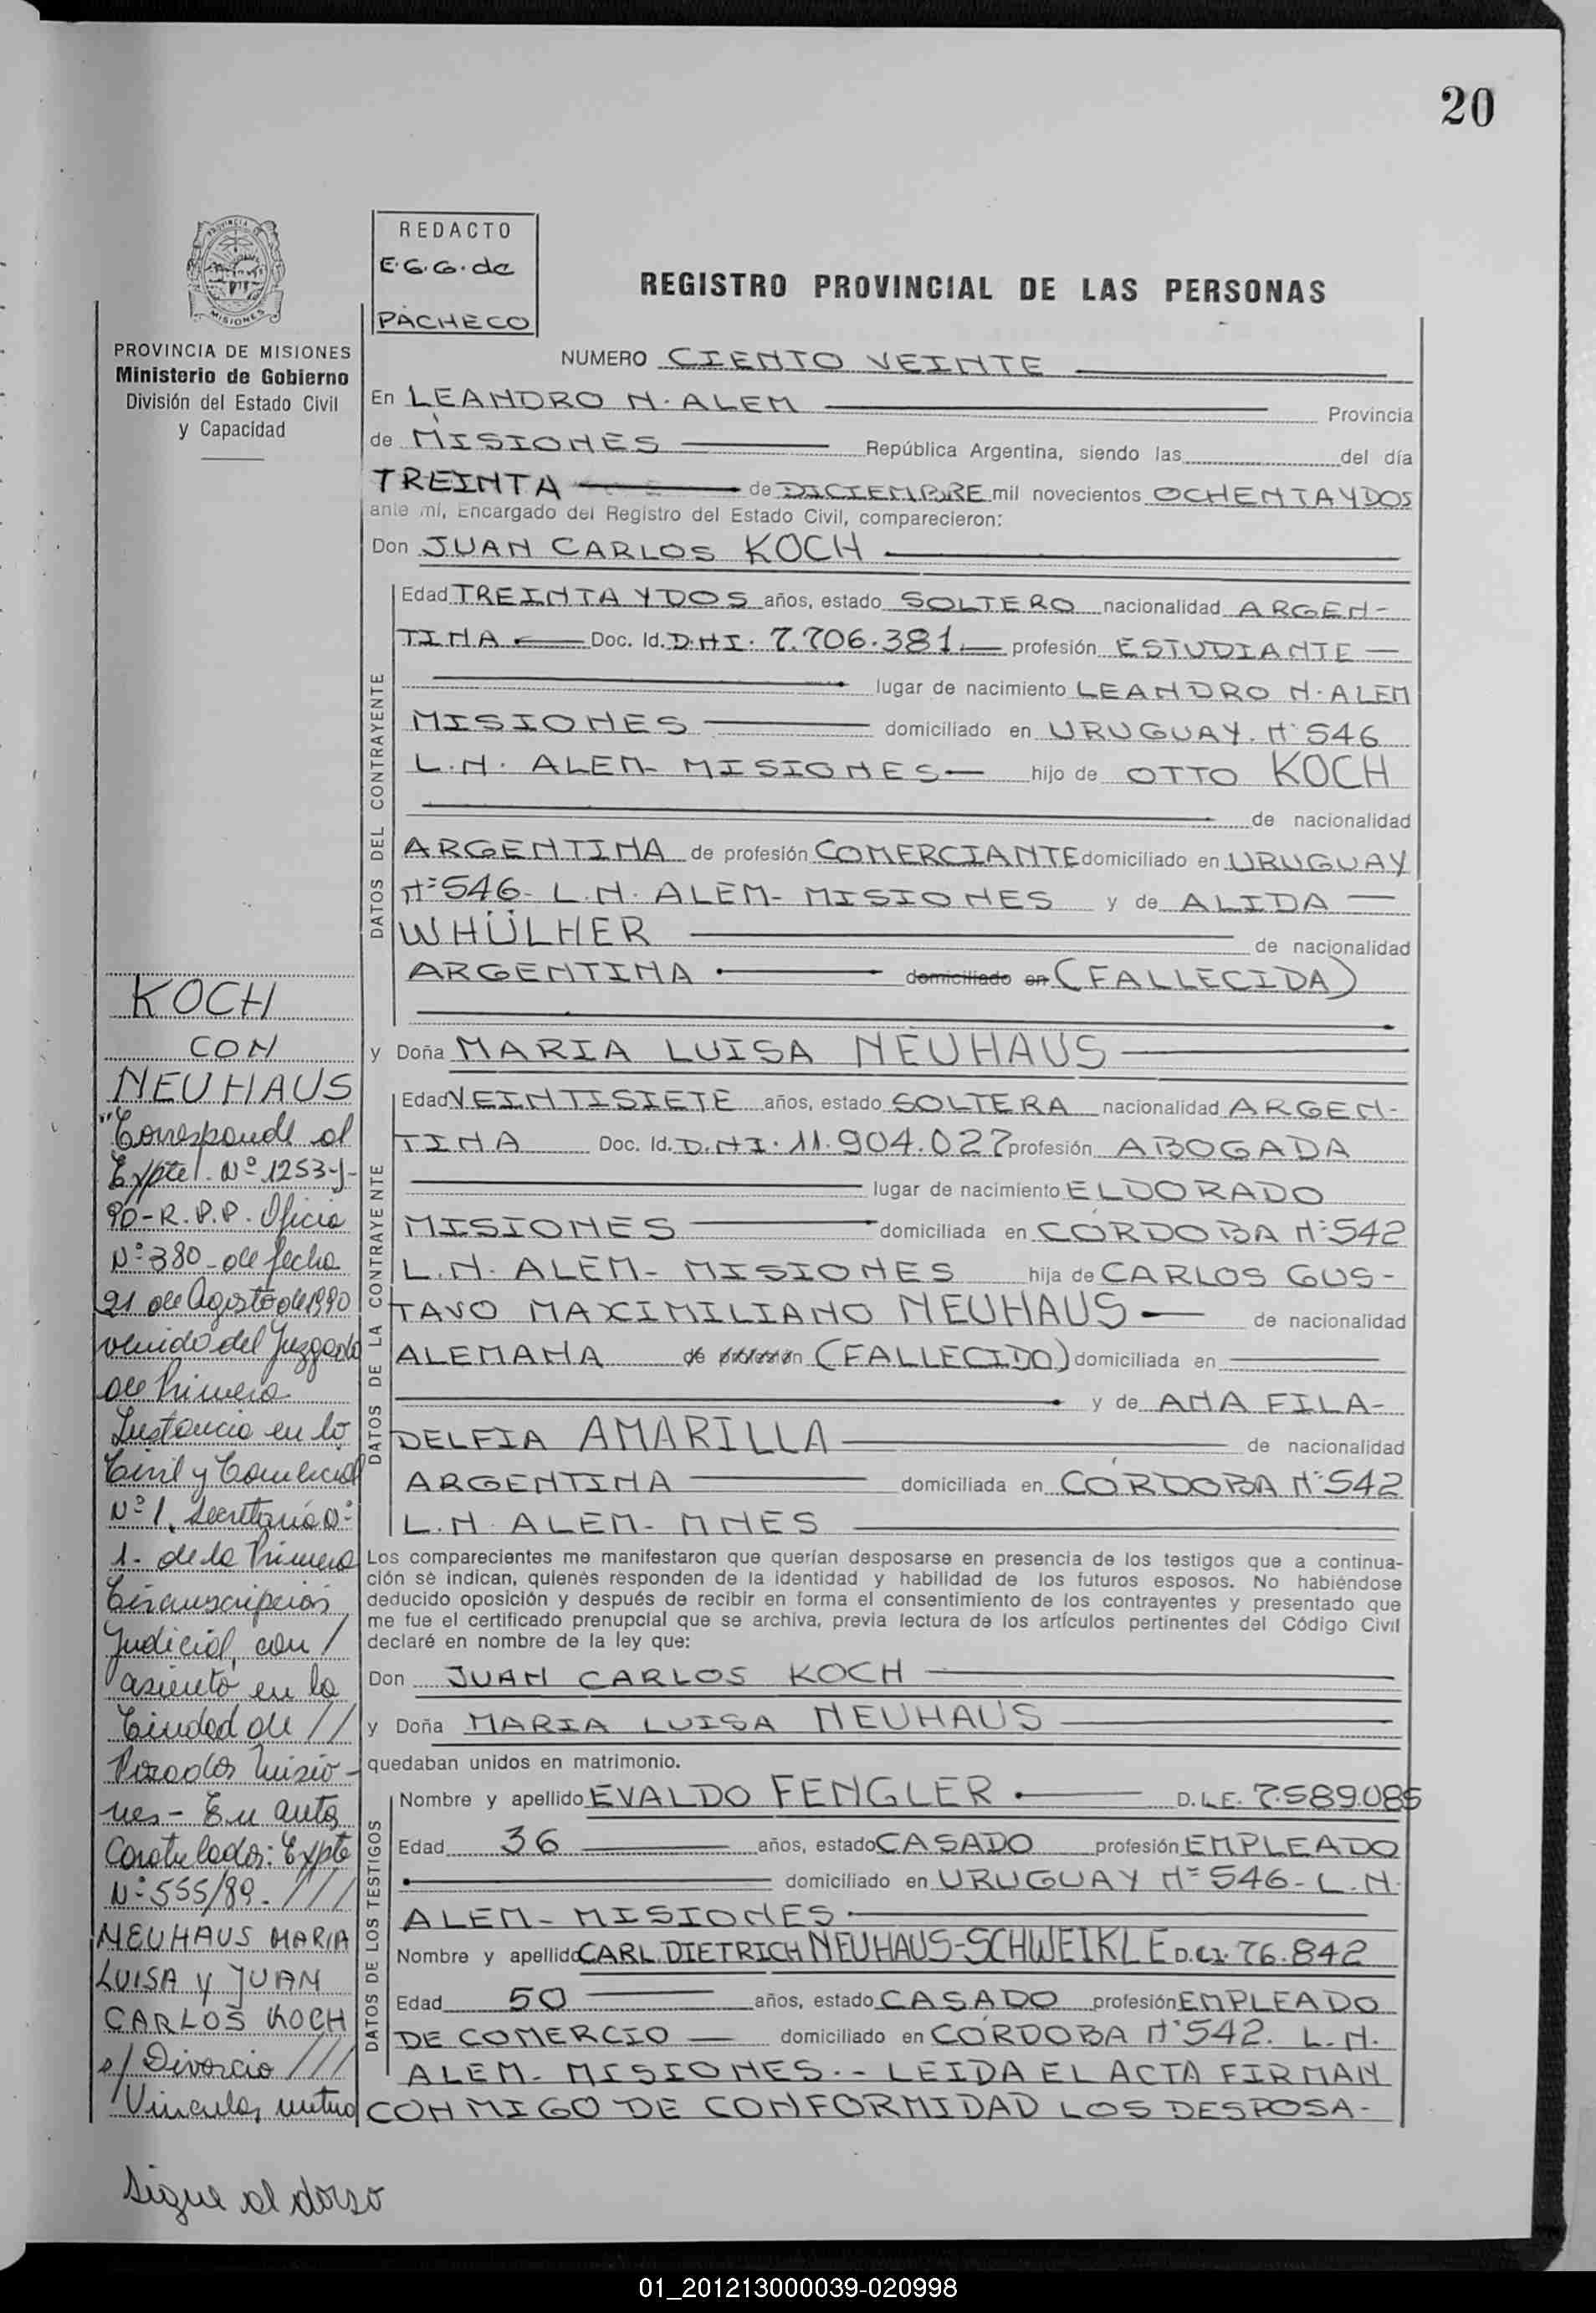 20
REDACTO
E.G.G. de
PACHECO
PROVINCIA DE MISIONES
Ministerio de Gobierno
División del Estado Civil
y Capacidad
REGISTRO PROVINCIAL DE LAS PERSONAS
NUMERO CIENTO VEINTE
En LEANDRO N. ALEM Provincia
de MISIONES República Argentina, siendo las del día
TREINTA de DICIEMBRE mil novecientos OCHENTA Y DOS
ante mí, Encargado del Registro del Estado Civil, comparecieron:
Don JUAN CARLOS KOCH
DATOS DEL CONTRAYENTE
Edad TREINTA Y DOS años, estado SOLTERO nacionalidad ARGEN-
TINA Doc. Id. D.N.I. 7.706.381 profesión ESTUDIANTE
lugar de nacimiento LEANDRO N. ALEM
MISIONES domiciliado en URUGUAY. Nº 546
L.N. ALEM- MISIONES hijo de OTTO KOCH
de nacionalidad
ARGENTINA de profesión COMERCIANTE domiciliado en URUGUAY
Nº 546- L.N. ALEM- MISIONES y de ALIDA
WHÜLHER de nacionalidad
ARGENTINA domiciliado en (FALLECIDA)
y Doña MARIA LUISA NEUHAUS
DATOS DE LA CONTRAYENTE
Edad VEINTISIETE años, estado SOLTERA nacionalidad ARGEN-
TINA Doc. Id. D.N.I. 11.904.027 profesión ABOGADA
lugar de nacimiento ELDORADO
MISIONES domiciliada en CÓRDOBA Nº 542
L.N. ALEM- MISIONES hija de CARLOS GUS-
TAVO MAXIMILIANO NEUHAUS de nacionalidad
ALEMANA de profesión (FALLECIDO) domiciliada en
y de ANA FILA-
DELFIA AMARILLA de nacionalidad
ARGENTINA domiciliada en CÓRDOBA Nº 542
L.N. ALEM- MNES
Los comparecientes me manifestaron que querían desposarse en presencia de los testigos que a continua-
ción se indican, quienes responden de la identidad y habilidad de los futuros esposos. No habiéndose
deducido oposición y después de recibir en forma el consentimiento de los contrayentes y presentado que
me fue el certificado prenupcial que se archiva, previa lectura de los artículos pertinentes del Código Civil
declaré en nombre de la ley que:
Don JUAN CARLOS KOCH
y Doña MARIA LUISA NEUHAUS
quedaban unidos en matrimonio.
DATOS DE LOS TESTIGOS
Nombre y apellido EVALDO FENGLER D.L.E. 7.589.085
Edad 36 años, estado CASADO profesión EMPLEADO
domiciliado en URUGUAY Nº 546- L.N.
ALEM- MISIONES
Nombre y apellido CARL DIETRICH NEUHAUS-SCHWEIKLE D.C.I. 76.842
Edad 50 años, estado CASADO profesión EMPLEADO
DE COMERCIO domiciliado en CÓRDOBA Nº 542. L.N.
ALEM- MISIONES.- LEIDA EL ACTA FIRMAN
CONMIGO DE CONFORMIDAD LOS DESPOSA-
KOCH
CON
NEUHAUS
"Corresponde al
Expte. Nº 1253-J-
90-R.P.P. Oficio
Nº 380- de fecha
21 de Agosto de 1990
venido del Juzgado
de Primera
Instancia en lo
Civil y Comercial
Nº 1, Secretaría Nº
1- de la Primera
Circunscripción
Judicial, con /
asiento en la
Ciudad de //
Posadas Misio-
nes- En autos
Caratulados: Expte
Nº 555/89- ///
NEUHAUS MARIA
LUISA y JUAN
CARLOS KOCH
s/ Divorcio ///
Vincular, mutuo
Sigue al dorso
01_201213000039-020998